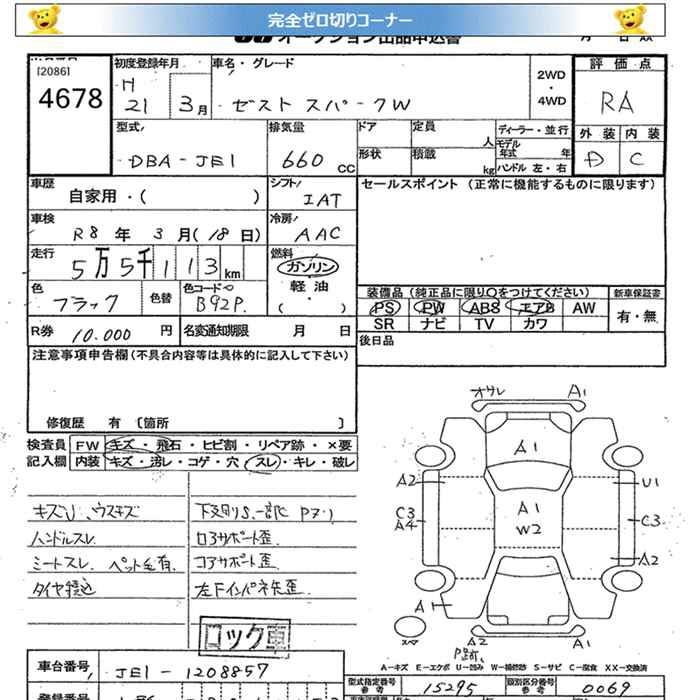 完全ゼロ切りコーナー
オークション出品申込書
[2086]
4678
初度登録年月 車名・グレード 2WD・4WD 評価点
H 21 3月 ゼスト スパークW RA
型式 排気量 ドア 定員 人 ディーラー・並行 外装 内装
DBA-JE1 660 CC 形状 積載 kg モデル年式 年 ハンドル 左・右 D C
車歴 自家用・( ) シフト IAT セールスポイント (正常に機能するものに限ります)
車検 R8年 3月(18日) 冷房 AAC
走行 5万5千113km 燃料 ガソリン 軽油 ( )
色 ブラック 色替 色コード B92P 装備品(純正品に限り○をつけてください) 新車保証書
PS PW ABS エアB AW 有・無
SR ナビ TV カワ
R券 10.000円 名変通知期限 月 日 後日品
注意事項申告欄(不具合内容等は具体的に記入して下さい)
修復歴 有 〔箇所 〕
検査員記入欄 FW キズ・飛石・ヒビ割・リペア跡・×要
内装 キズ・汚レ・コゲ・穴・スレ・キレ・破レ
キズU、ウスキズ
ハンドルスレ
シートスレ ペット毛有
下廻りS、一部に
ロアサポート歪
コアサポート歪
ロック車
オサレ A1
A1
A2 U1
C3 A4 A1 W2 C3
A2
A1
A2 A1
A-キズ E-エクボ U-凹み W-補修跡 S-サビ C-腐食 XX-交換済
車台番号 JE1-1208857
型式指定番号 参考 15295 類別区分番号 参考 0069
登録番号